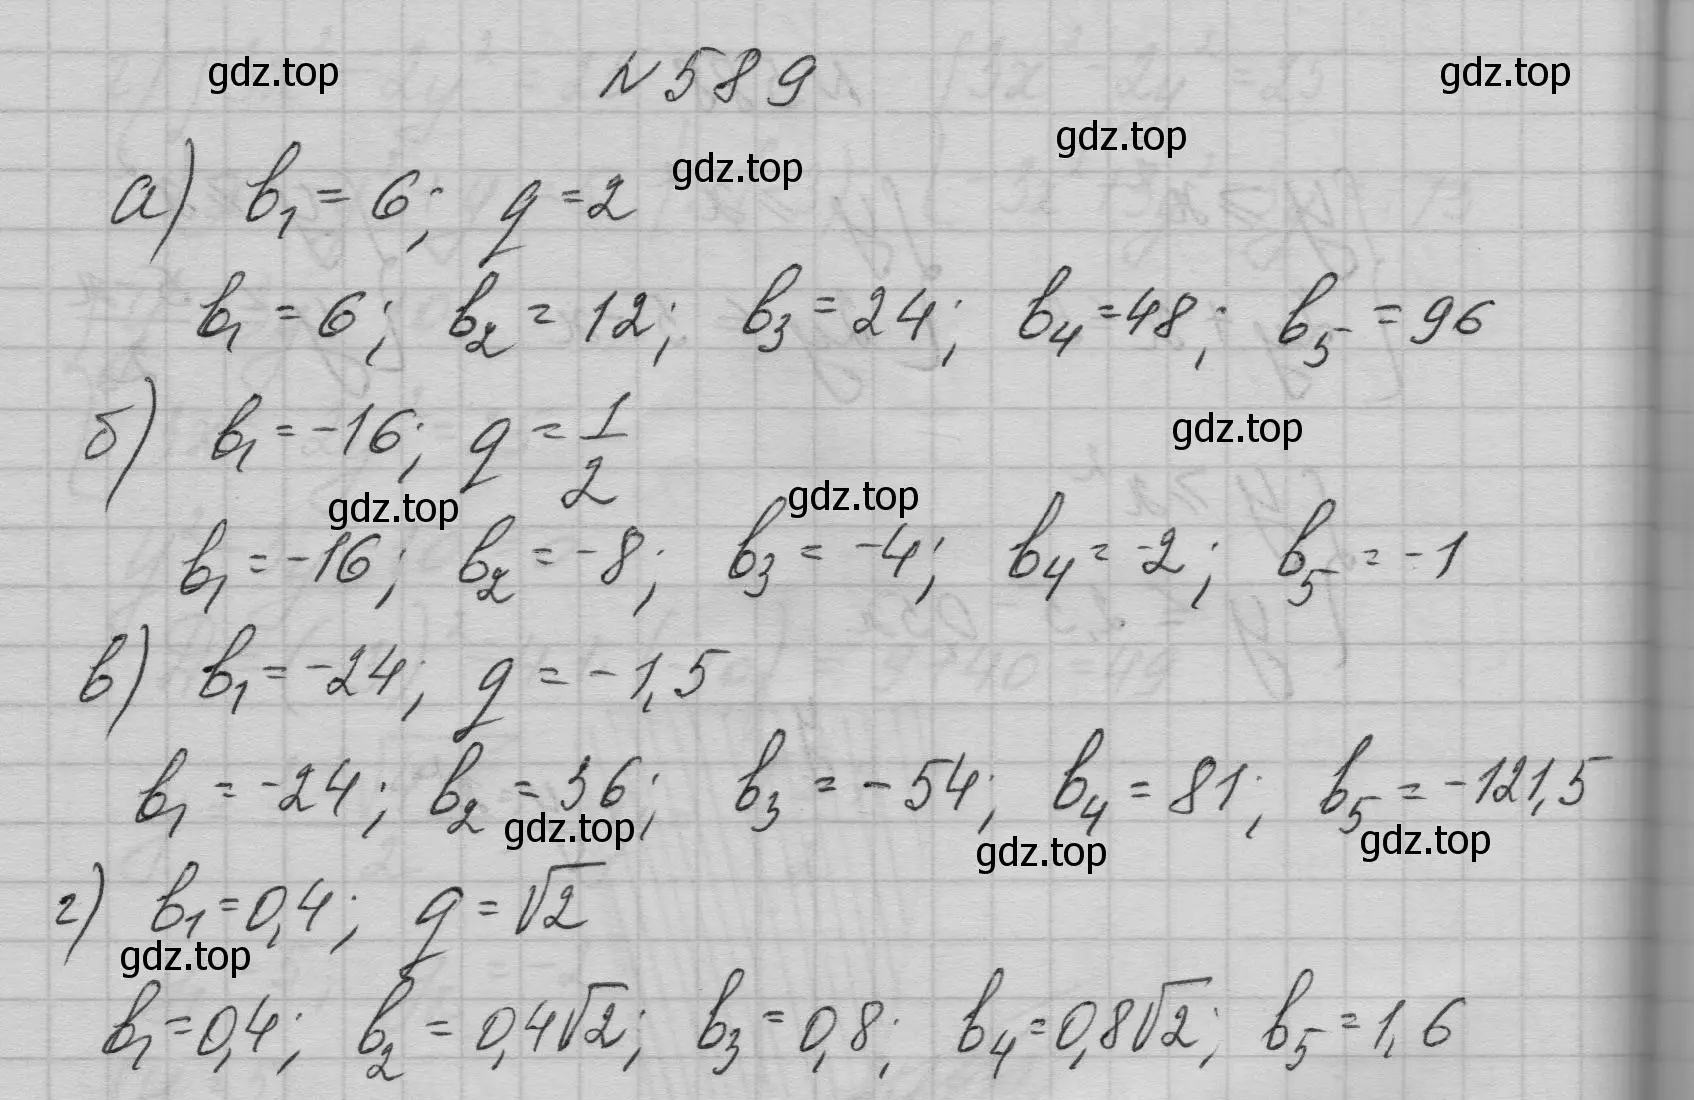 gdz.top №589 gdz.top
gdz.top
gdz.top
а) b₁ = 6; q = 2
b₁ = 6; b₂ = 12; b₃ = 24; b₄ = 48; b₅ = 96
б) b₁ = -16; q = 1/2
gdz.top
gdz.top gdz.top
b₁ = -16; b₂ = -8; b₃ = -4; b₄ = -2; b₅ = -1
в) b₁ = -24; q = -1,5
b₁ = -24; b₂ = 36; b₃ = -54; b₄ = 81; b₅ = -121,5
gdz.top gdz.top gdz.top
г) b₁ = 0,4; q = √2
gdz.top
b₁ = 0,4; b₂ = 0,4√2; b₃ = 0,8; b₄ = 0,8√2; b₅ = 1,6